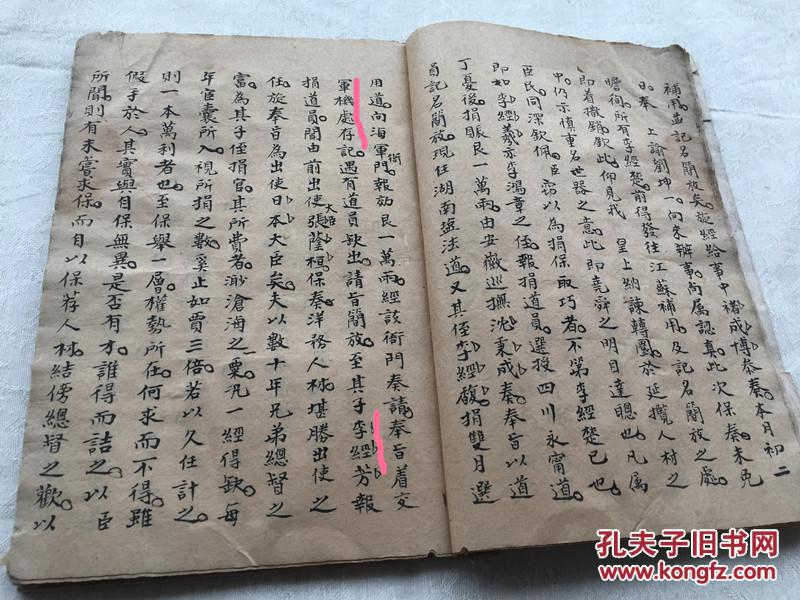 補用並記名簡放矣旋經給事中褚成博參奏本月初二
日奉　上諭劉坤一向來辦事尚屬認真此次保奏未免
瞻徇所有李經楚前得發往江蘇補用及記名簡放之處
即着撤銷欽此仰見我　皇上納諫轉圜於延攬人材之
中仍示慎重名世器之意此即堯舜之明目達聰也凡屬
臣民同深欽佩臣竊以為捐保取巧者不第李經楚已也
即如李經羲亦李鴻章之侄報捐道員選授四川永甯道
丁憂後捐賑艮一萬兩由安徽巡撫沈秉成奏奉旨以道
員記名簡放現任湖南鹽法道又其侄李經馥捐雙月選
用道向海軍衙門報効艮一萬兩經該衙門奏請奉旨着交
軍機處存記遇有道員缺出請旨簡放至其子李經芳報
捐道員間由前出使大臣張蔭桓保奏洋務人材堪勝出使之
任旋奉旨為出使日本大臣矣夫以數十年兄弟總督之
富為其子侄捐官其所費者渺滄海之一粟況一經得缺每
年宦囊所入視所捐之數奚止如賈三倍若以久任計之
則一本萬利者也至保舉一層權勢所在何求而不得雖
假手於人其實與自保無異是否有才誰得而詰之以臣
所聞則有未嘗求保而自以保荐人材結傍總督之歡以
孔夫子旧书网
www.kongfz.com